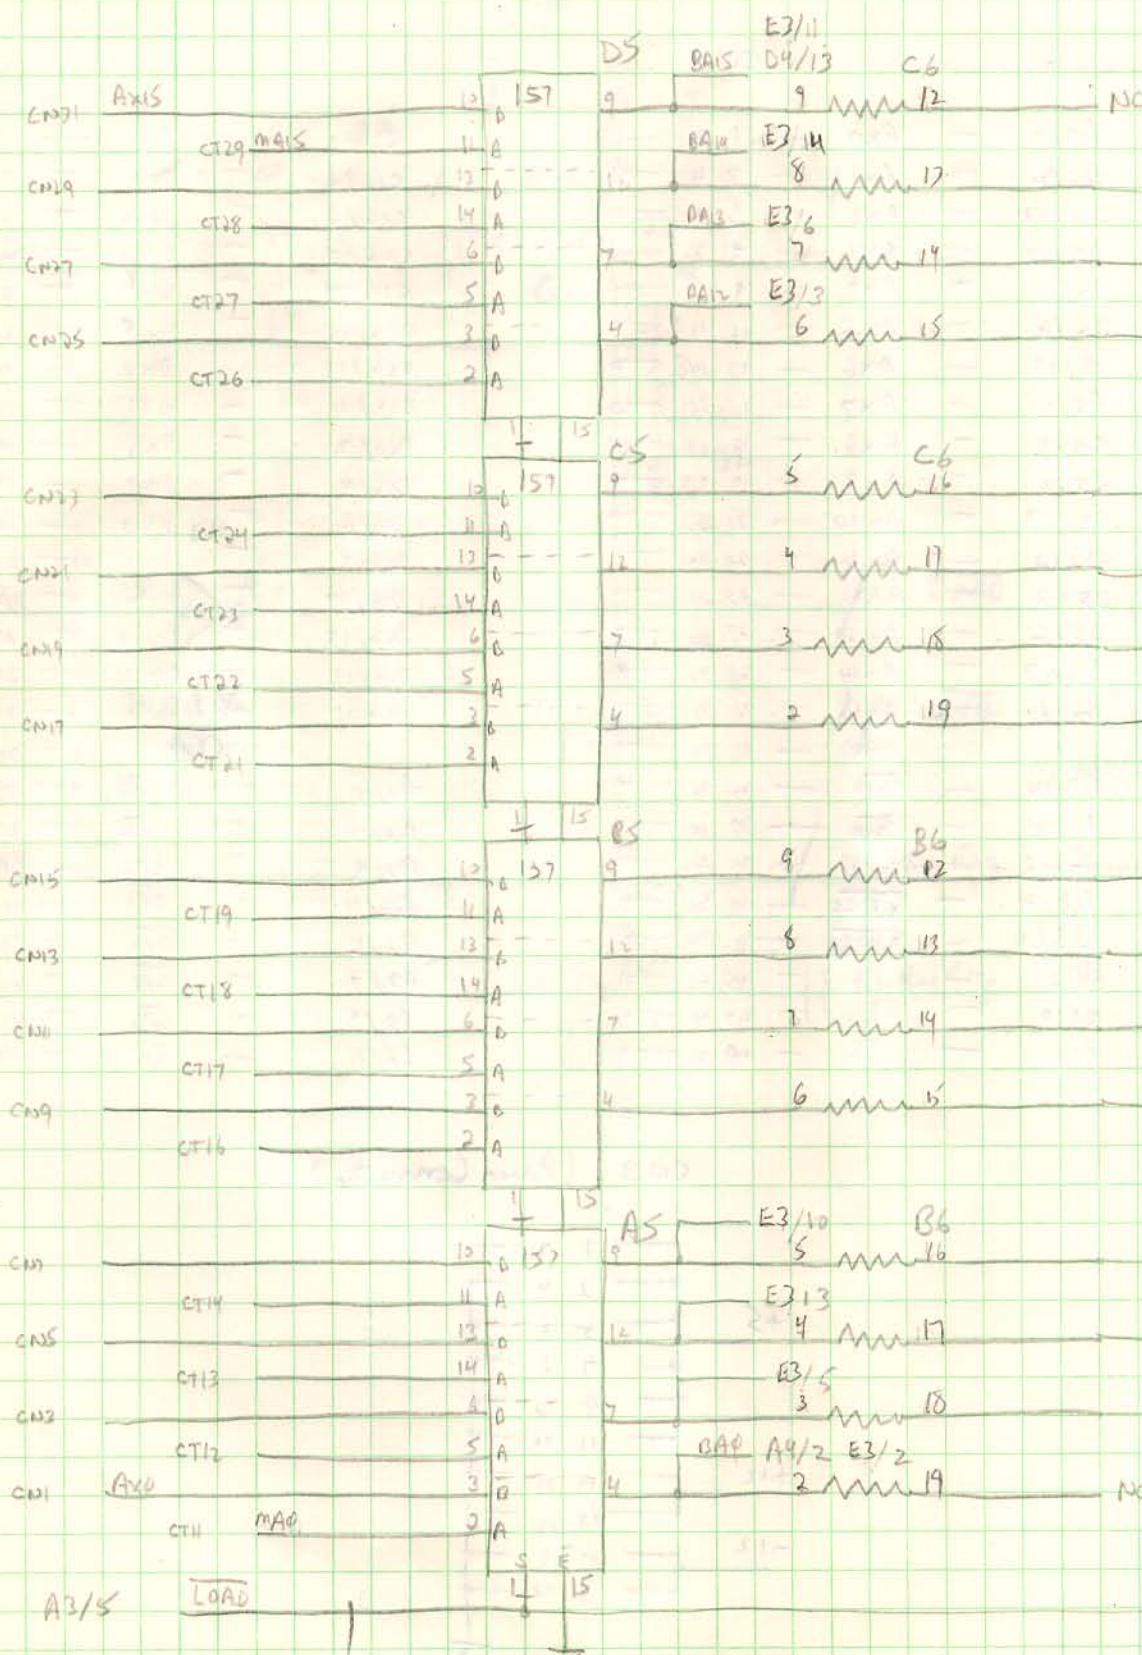 E3/11
D5 BA15 D4/13 C6
CN31 AX15 10 B 157 9 9 12 NO
CT29 MA15 11 A BA14 E3/14
CN29 13 B 12 8 13
CT28 14 A BA13 E3/6
CN27 6 B 7 7 14
CT27 5 A BA12 E3/3
CN25 3 B 4 6 15
CT26 2 A
1 15 C5 C6
CN23 10 B 157 9 5 16
CT24 11 A
CN21 13 B 12 4 17
CT23 14 A
CN19 6 B 7 3 18
CT22 5 A
CN17 3 B 4 2 19
CT21 2 A
1 15 B5 B6
CN15 10 B 157 9 9 12
CT19 11 A
CN13 13 B 12 8 13
CT18 14 A
CN11 6 B 7 7 14
CT17 5 A
CN9 3 B 4 6 15
CT16 2 A
1 15 A5 E3/10 B6
CN7 10 B 157 9 5 16
CT14 11 A E3 13
CN5 13 B 12 4 17
CT13 14 A E3/5
CN3 6 B 7 3 18
CT12 5 A BA0 A4/2 E3/2
CN1 AX0 3 B 4 2 19 NO
CT11 MA0 2 A
S E
1 15
A3/5 LOAD